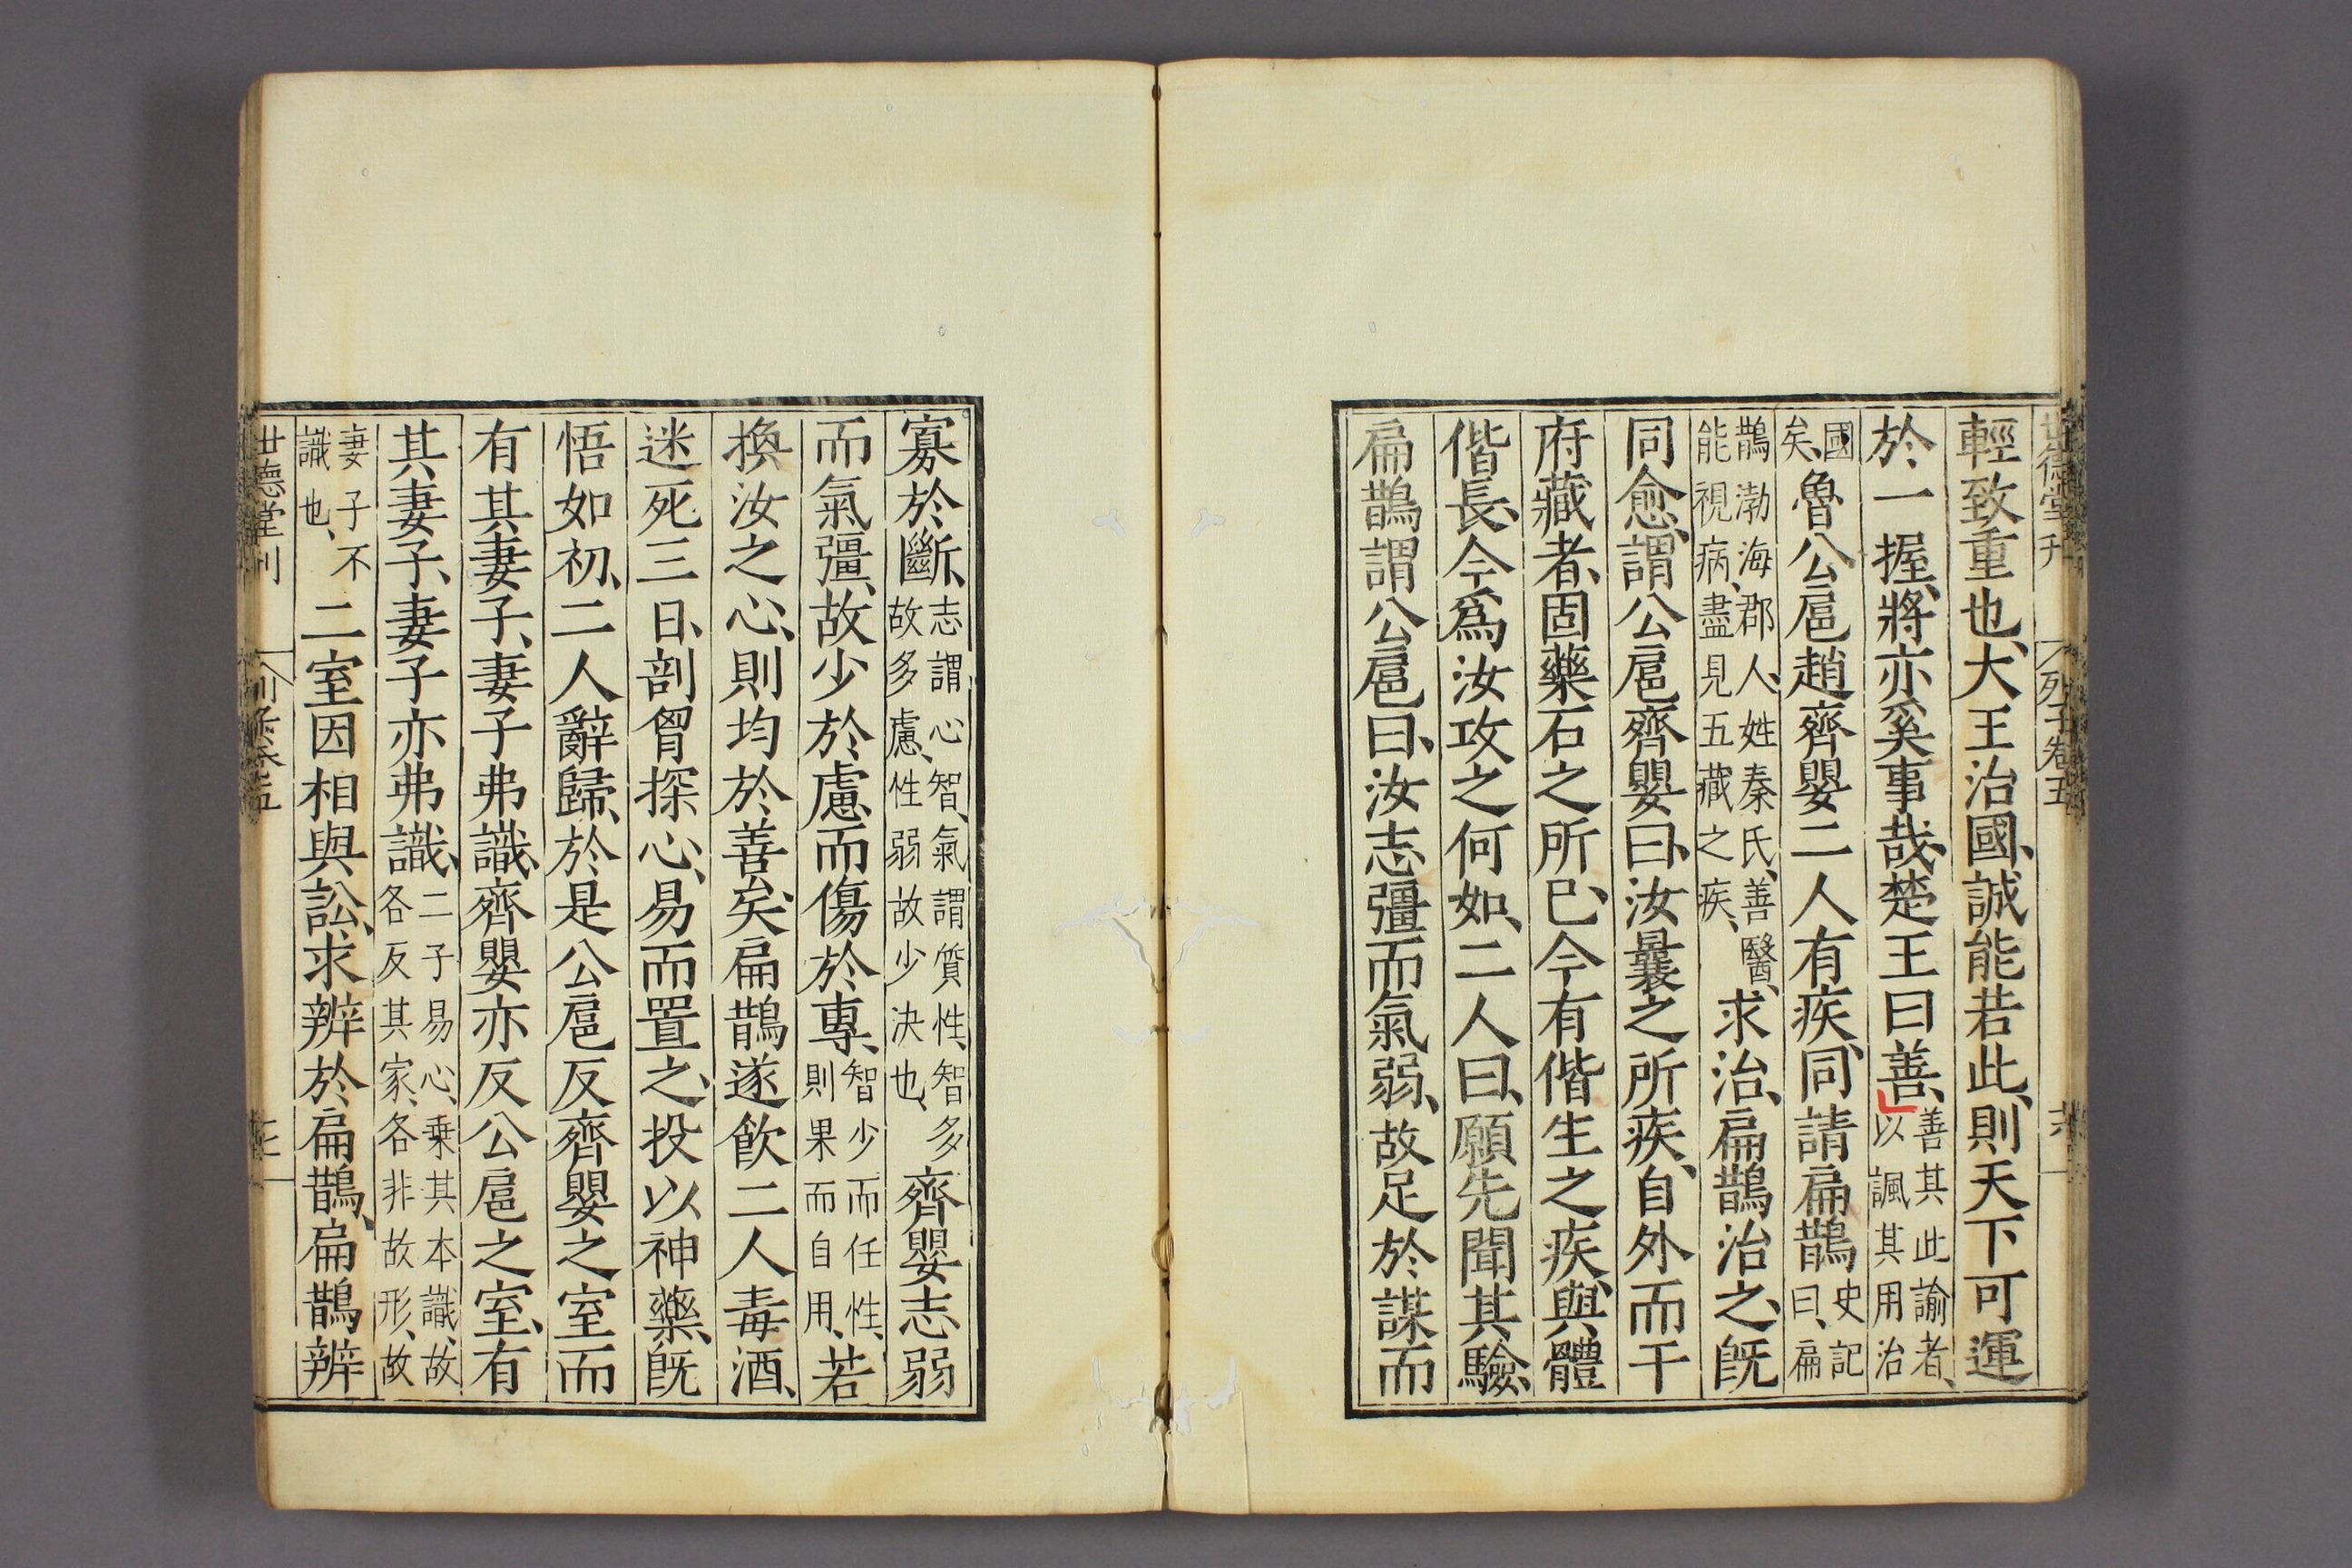 輕致重也、大王治國、誠能若此、則天下可運
於一握、將亦奚事哉、楚王曰善、善其此諭者、以諷其用治
國矣、魯公扈趙齊嬰二人有疾、同請扁鵲史記曰、扁
鵲渤海郡人、姓秦氏、善醫、能視病、盡見五藏之疾、求治、扁鵲治之、旣
同愈、謂公扈齊嬰曰、汝曩之所疾、自外而干
府藏者、固藥石之所已、今有偕生之疾、與體
偕長、今爲汝攻之何如、二人曰、願先聞其驗、
扁鵲謂公扈曰、汝志彊而氣弱、故足於謀而
寡於斷、志謂心智、氣謂質性、智多故多慮、性弱故少決也、齊嬰志弱
而氣彊、故少於慮、而傷於專、智少而任性、則果而自用、若
換汝之心、則均於善矣、扁鵲遂飮二人毒酒、
迷死三日、剖胷探心、易而置之、投以神藥、旣
悟如初、二人辭歸、於是公扈反齊嬰之室、而
有其妻子、妻子弗識、齊嬰亦反公扈之室、有
其妻子、妻子亦弗識、二子易心、乗其本識、故各反其家、各非故形、故
妻子不識也、二室因相與訟、求辨於扁鵲、扁鵲辨
世德堂刊